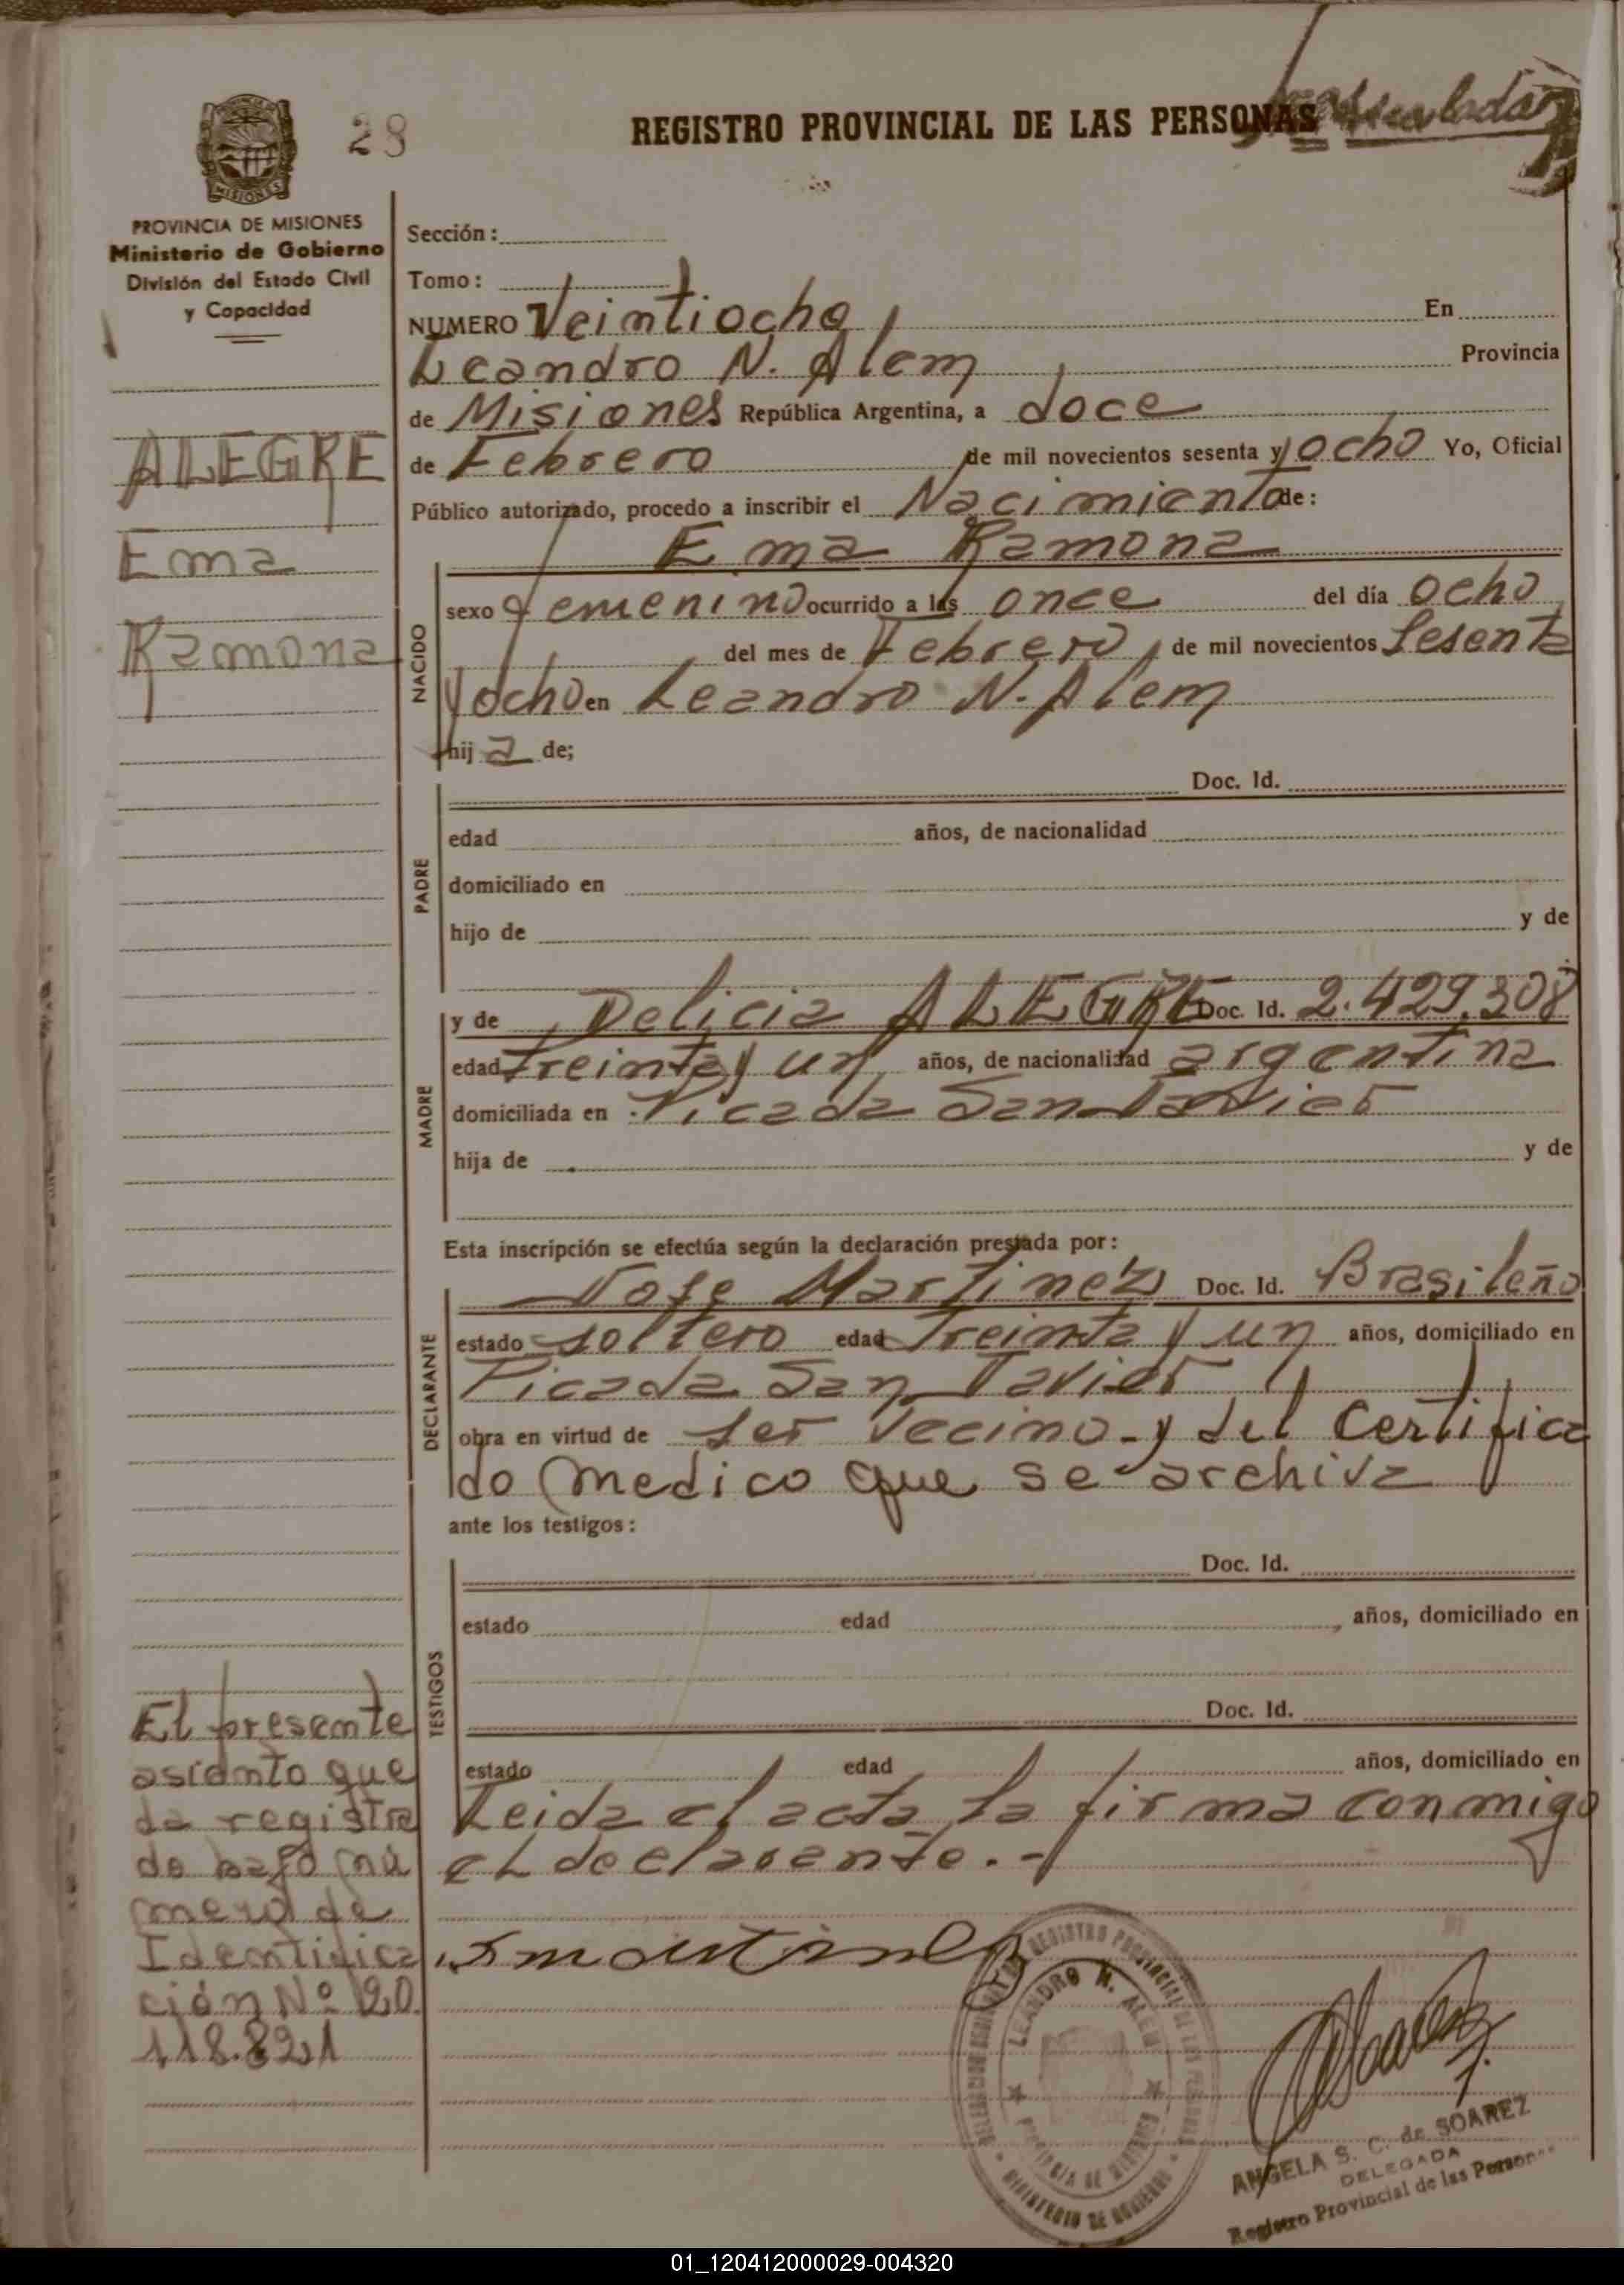 28
REGISTRO PROVINCIAL DE LAS PERSONAS
PROVINCIA DE MISIONES
MISIONES
PROVINCIA DE MISIONES
Ministerio de Gobierno
División del Estado Civil
y Capacidad
ALEGRE
Ema
Ramona
El presente
asiento que
da registra
do bajo nú
mero de
Identifica
ción Nº 20.
118.821
Sección:
Tomo:
NUMERO Veintiocho En
Leandro N. Alem Provincia
de Misiones República Argentina, a doce
de Febrero de mil novecientos sesenta y ocho Yo, Oficial
Público autorizado, procedo a inscribir el Nacimiento de:
Ema Ramona
NACIDO
sexo Femenino ocurrido a las once del día ocho
del mes de Febrero de mil novecientos Sesenta
y ocho en Leandro N. Alem
hij a de;
PADRE
Doc. Id.
edad años, de nacionalidad
domiciliado en
hijo de y de
MADRE
y de Delicia ALEGRE Doc. Id. 2.429.308
edad treinta y un años, de nacionalidad argentina
domiciliada en Picada San Javier
hija de y de
Esta inscripción se efectúa según la declaración prestada por:
DECLARANTE
Jose Martinez Doc. Id. Brasileño
estado soltero edad treinta y un años, domiciliado en
Picada San Javier
obra en virtud de ser vecino y del certifica
do medico que se archiva
ante los testigos:
TESTIGOS
Doc. Id.
estado edad , años, domiciliado en
Doc. Id.
estado edad años, domiciliado en
Leida el acta la firma conmigo
el declarante.-
REGISTRO PROVINCIAL DE LAS PERSONAS
LEANDRO N. ALEM
PROVINCIA DE MISIONES
MINISTERIO DE GOBIERNO
ANGELA S. C. de SOAREZ
DELEGADA
Registro Provincial de las Personas
01_120412000029-004320